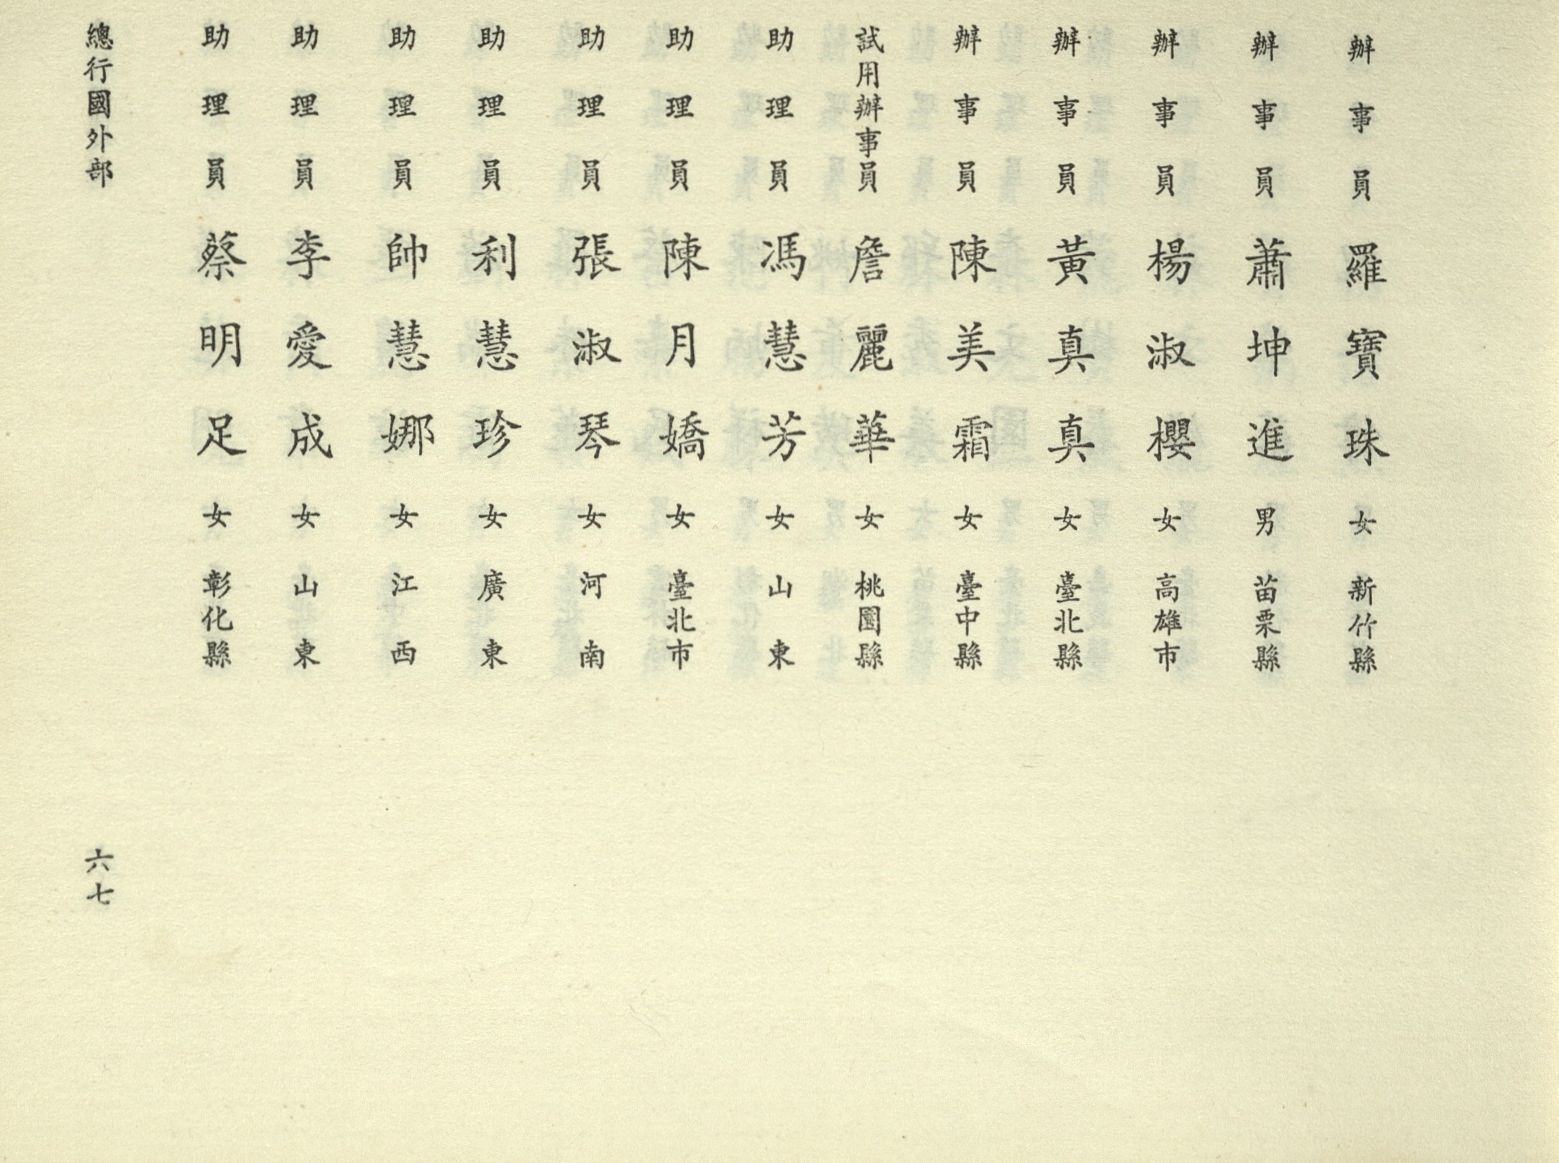 辦事員 羅寶珠 女 新竹縣
辦事員 蕭坤進 男 苗栗縣
辦事員 楊淑櫻 女 高雄市
辦事員 黃真真 女 臺北縣
辦事員 陳美霜 女 臺中縣
試用辦事員 詹麗華 女 桃園縣
助理員 馮慧芳 女 山東
助理員 陳月嬌 女 臺北市
助理員 張淑琴 女 河南
助理員 利慧珍 女 廣東
助理員 帥慧娜 女 江西
助理員 李愛成 女 山東
助理員 蔡明足 女 彰化縣
總行國外部
六七